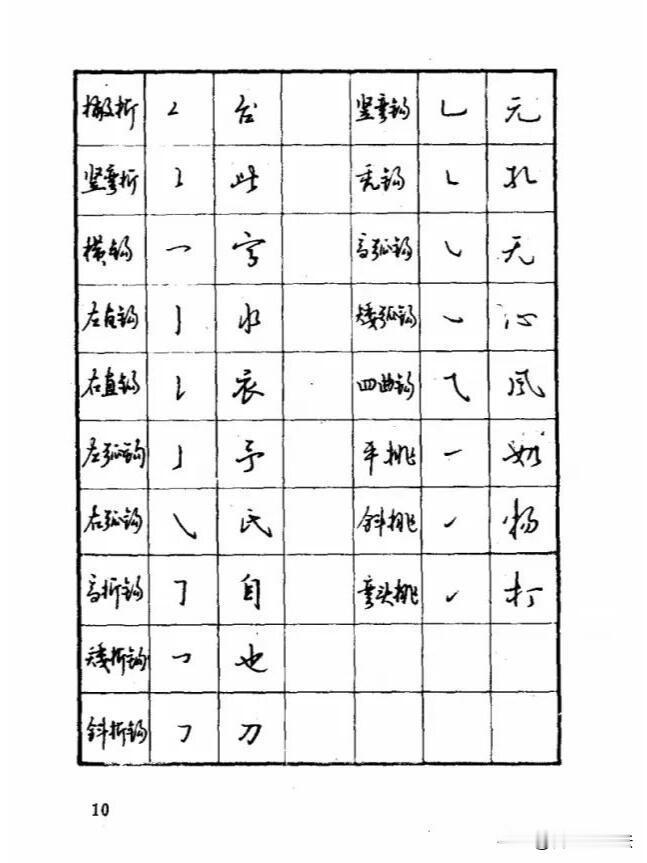 撇折 台 竖弯钩 元
竖弯折 此 秃钩 孔
横钩 字 高弧钩 无
左直钩 水 矮弧钩 沁
右直钩 衣 四曲钩 风
左弧钩 予 平挑 如
右弧钩 氏 斜挑 杨
高折钩 自 弯头挑 打
矮折钩 也
斜折钩 刀
10